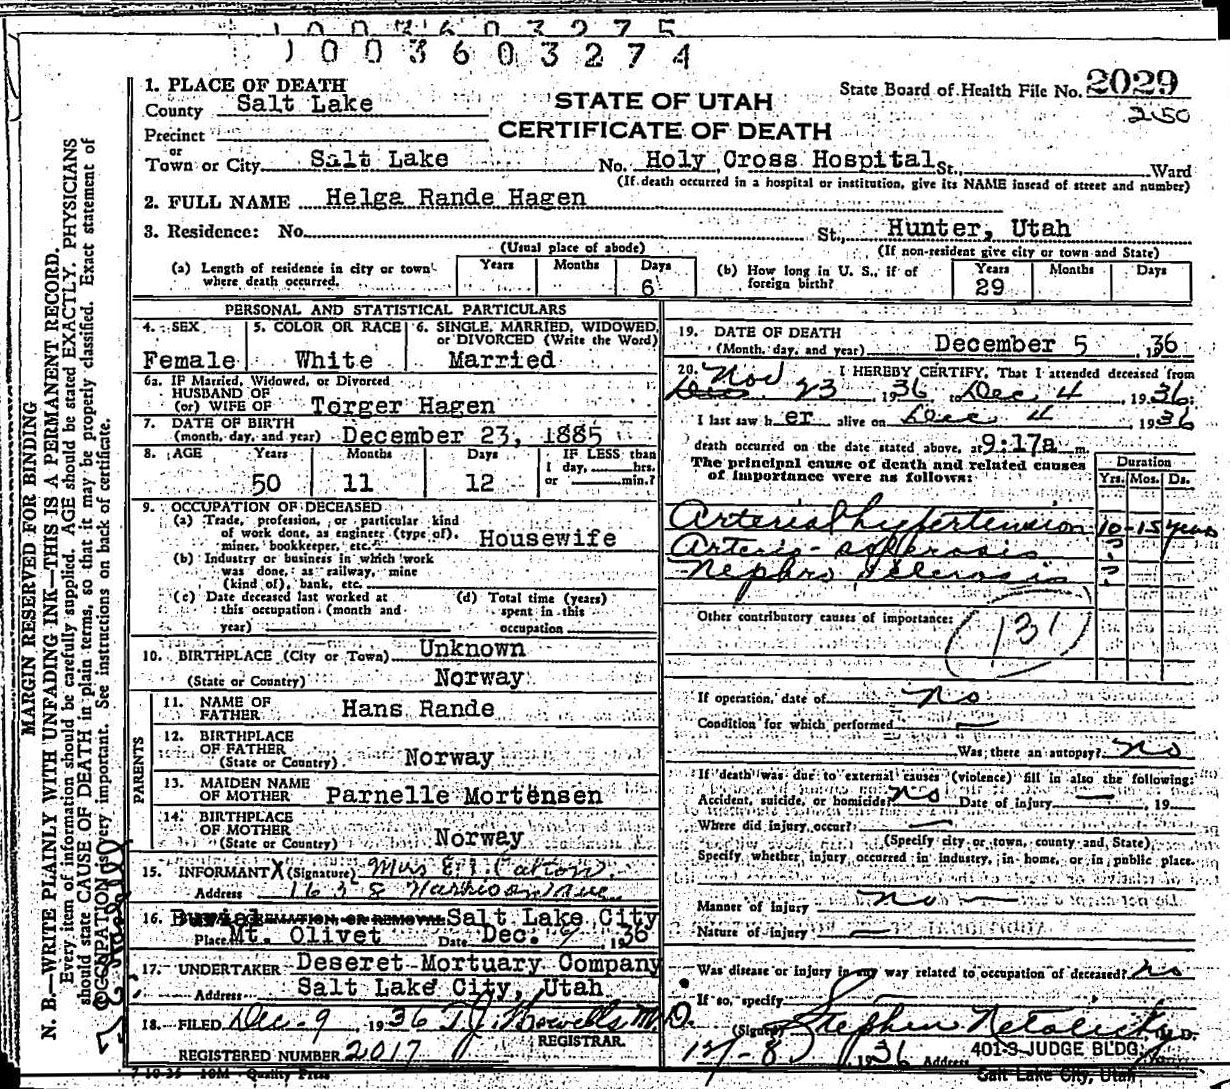 1003603275
1003603274
1. PLACE OF DEATH
County Salt Lake
STATE OF UTAH
CERTIFICATE OF DEATH
State Board of Health File No. 2029
250
Precinct
or
Town or City Salt Lake No. Holy Cross Hospital St., Ward
(If death occurred in a hospital or institution, give its NAME insead of street and number)
2. FULL NAME Helga Rande Hagen
3. Residence: No. St., Hunter, Utah
(Usual place of abode) (If non-resident give city or town and State)
(a) Length of residence in city or town where death occurred. Years Months Days 6
(b) How long in U. S., if of foreign birth? Years 29 Months Days
PERSONAL AND STATISTICAL PARTICULARS
4. SEX Female
5. COLOR OR RACE White
6. SINGLE, MARRIED, WIDOWED, or DIVORCED (Write the Word) Married
6a. IF Married, Widowed, or Divorced
HUSBAND OF
(or) WIFE OF Torger Hagen
7. DATE OF BIRTH
(month, day, and year) December 23, 1885
8. AGE Years 50 Months 11 Days 12 IF LESS than 1 day, hrs. or min.?
9. OCCUPATION OF DECEASED
(a) Trade, profession, or particular kind
of work done, as engineer (type of),
miner, bookkeeper, etc. Housewife
(b) Industry or business in which work
was done, as railway, mine
(kind of), bank, etc.
(c) Date deceased last worked at
this occupation (month and
year)
(d) Total time (years)
spent in this
occupation
10. BIRTHPLACE (City or Town) Unknown
(State or Country) Norway
PARENTS
11. NAME OF
FATHER Hans Rande
12. BIRTHPLACE
OF FATHER
(State or Country) Norway
13. MAIDEN NAME
OF MOTHER Parnelle Mortensen
14. BIRTHPLACE
OF MOTHER
(State or Country) Norway
15. INFORMANT X (Signature) Mrs E. I.
Address 1638 Harrison Ave
16. Burial CREMATION OR REMOVAL Salt Lake City
Place Mt. Olivet Date Dec. 9 1936
17. UNDERTAKER Deseret Mortuary Company
Address Salt Lake City, Utah
18. FILED Dec-9, 1936 T.J. Howells M.D.
REGISTRAR.
REGISTERED NUMBER 2017
7-10-35 10M Quality Press
19. DATE OF DEATH
(Month, day, and year) December 5 1936
20. I HEREBY CERTIFY, That I attended deceased from
Nov 23, 1936 to Dec 4, 1936
I last saw h er alive on Dec 4, 1936
death occurred on the date stated above, at 9:17a m.
The principal cause of death and related causes
of importance were as follows:
Duration
Yrs. Mos. Ds.
Arterial hypertension 10-15 years
Arterio-sclerosis ?
Nephro sclerosis ?
Other contributory causes of importance:
131
If operation, date of No
Condition for which performed —
Was there an autopsy? No
If death was due to external causes (violence) fill in also the following:
Accident, suicide, or homicide? No Date of injury —, 19
Where did injury occur? —
(Specify city or town, county and State)
Specify whether injury occurred in industry, in home, or in public place.
Manner of injury No —
Nature of injury —
Was disease or injury in any way related to occupation of deceased? No
If so, specify
(Signed) Stephen Netolicky M. D.
12/-8 1936 Address 401-3 JUDGE BLDG.
Salt Lake City, Utah
MARGIN RESERVED FOR BINDING
N. B.—WRITE PLAINLY WITH UNFADING INK—THIS IS A PERMANENT RECORD.
Every item of information should be carefully supplied. AGE should be stated EXACTLY. PHYSICIANS
should state CAUSE OF DEATH in plain terms, so that it may be properly classified. Exact statement of
OCCUPATION is very important. See instructions on back of certificate.